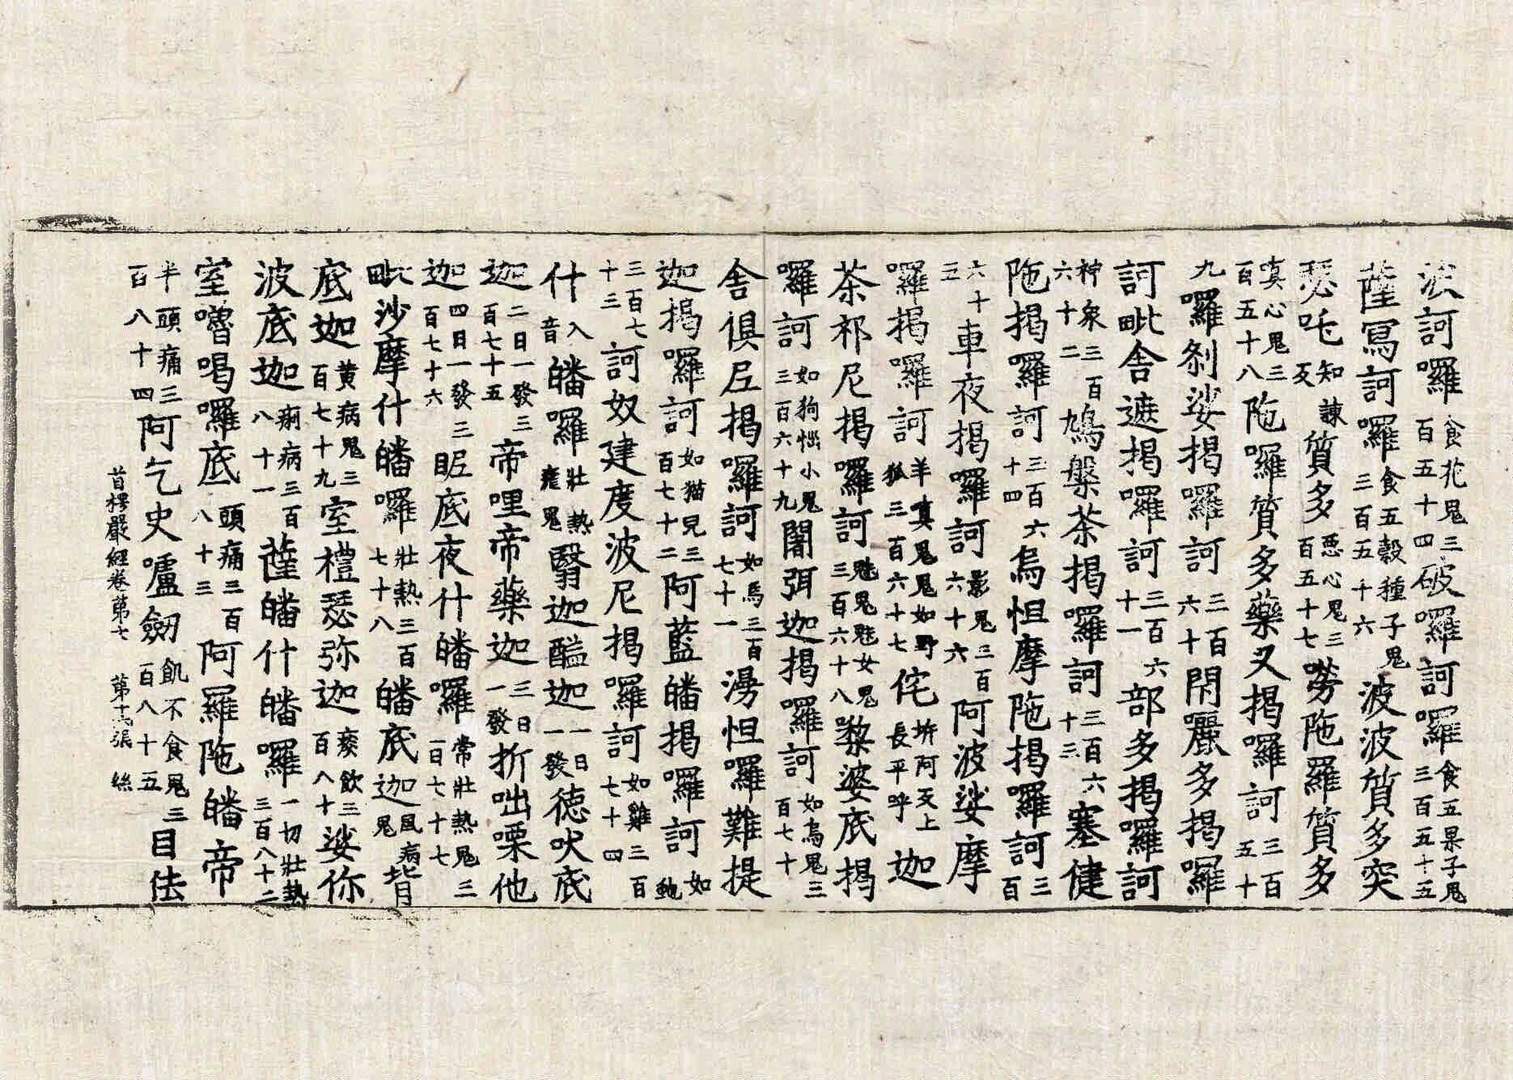 波訶囉食花鬼三百五十四破囉訶囉食五果子鬼三百五十五
薩寫訶囉食五穀種子鬼三百五十六波波質多突
瑟吒知諫反質多惡心鬼三百五十七嘮陁羅質多
嗔心鬼三百五十八陁囉質多藥叉揭囉訶三百五十
九羅刹娑揭囉訶三百六十閇麗多揭囉
訶毗舍遮揭囉訶三百六十一部多揭囉訶
神衆三百六十二鳩槃荼揭囉訶三百六十三塞健
陁揭囉訶三百六十四烏怛摩陁揭囉訶三百
六十五車夜揭囉訶影鬼三百六十六阿波娑摩
囉揭囉訶羊嗔鬼鬼如野狐三百六十七侘阿反上長平呼迦
荼祁尼揭囉訶魅鬼魅女鬼三百六十八梨婆底揭
囉訶如狗惱小鬼三百六十九闍弭迦揭囉訶如烏鬼三百七十
舍俱尼揭囉訶如馬三百七十一漫怛囉難提
迦揭囉訶如猫兒三百七十二阿藍皤揭囉訶如虵
三百七十三訶奴建度波尼揭囉訶如雞三百七十四
什入音皤羅壯熱瘧鬼翳迦醯迦一日一發德吠底
迦二日一發三百七十五帝哩帝藥迦三日一發折咄栗他
迦四日一發三百七十六昵底夜什皤囉常壯熱鬼三百七十七
毗沙摩什皤囉壯熱三百七十八皤底迦風病鬼背
底迦黃病鬼三百七十九室禮瑟弥迦痰飲三百八十娑你
波底迦痢病三百八十一薩皤什皤囉一切壯熱三百八十二
室嚕喝囉底頭痛三百八十三阿羅陁皤帝
半頭痛三百八十四阿乞史嚧劒飢不食鬼三百八十五目佉
首楞嚴經卷第七 第十張 絲